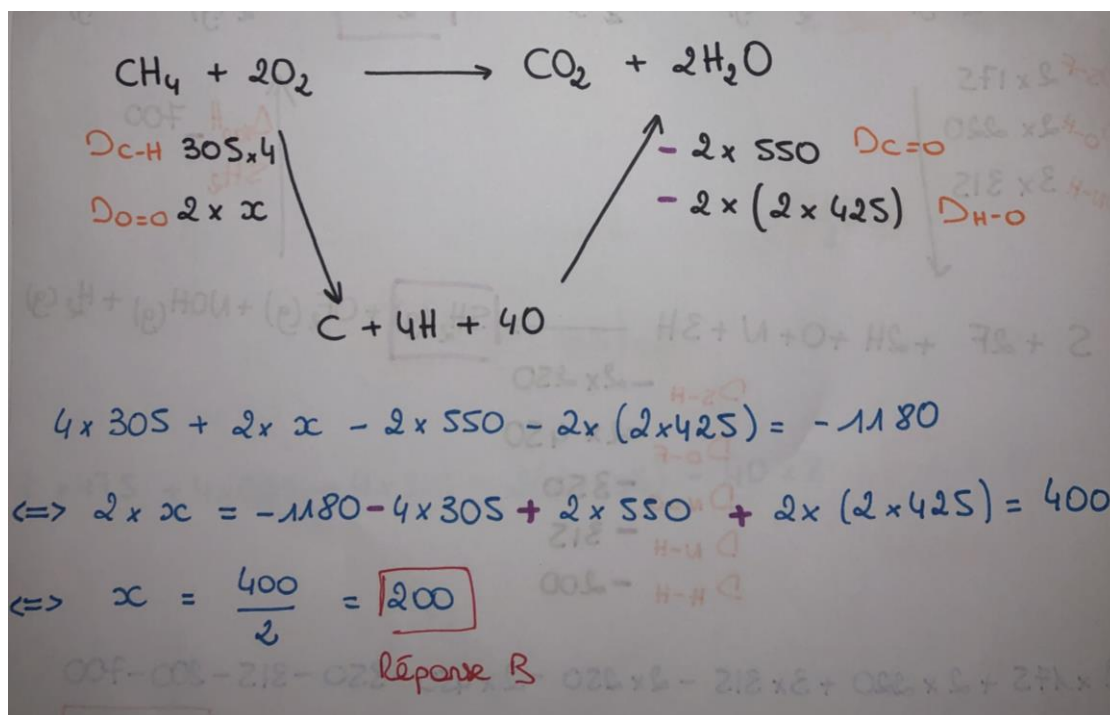 CH₄ + 2O₂ ⟶ CO₂ + 2H₂O
D_C-H 305×4
D_O=O 2 × x
- 2 × 550 D_C=O
- 2 × (2 × 425) D_H-O
C + 4H + 4O
4 × 305 + 2 × x - 2 × 550 - 2 × (2×425) = -1180
<=> 2 × x = -1180 - 4 × 305 + 2 × 550 + 2 × (2 × 425) = 400
<=> x = 400/2 = 200
Réponse B